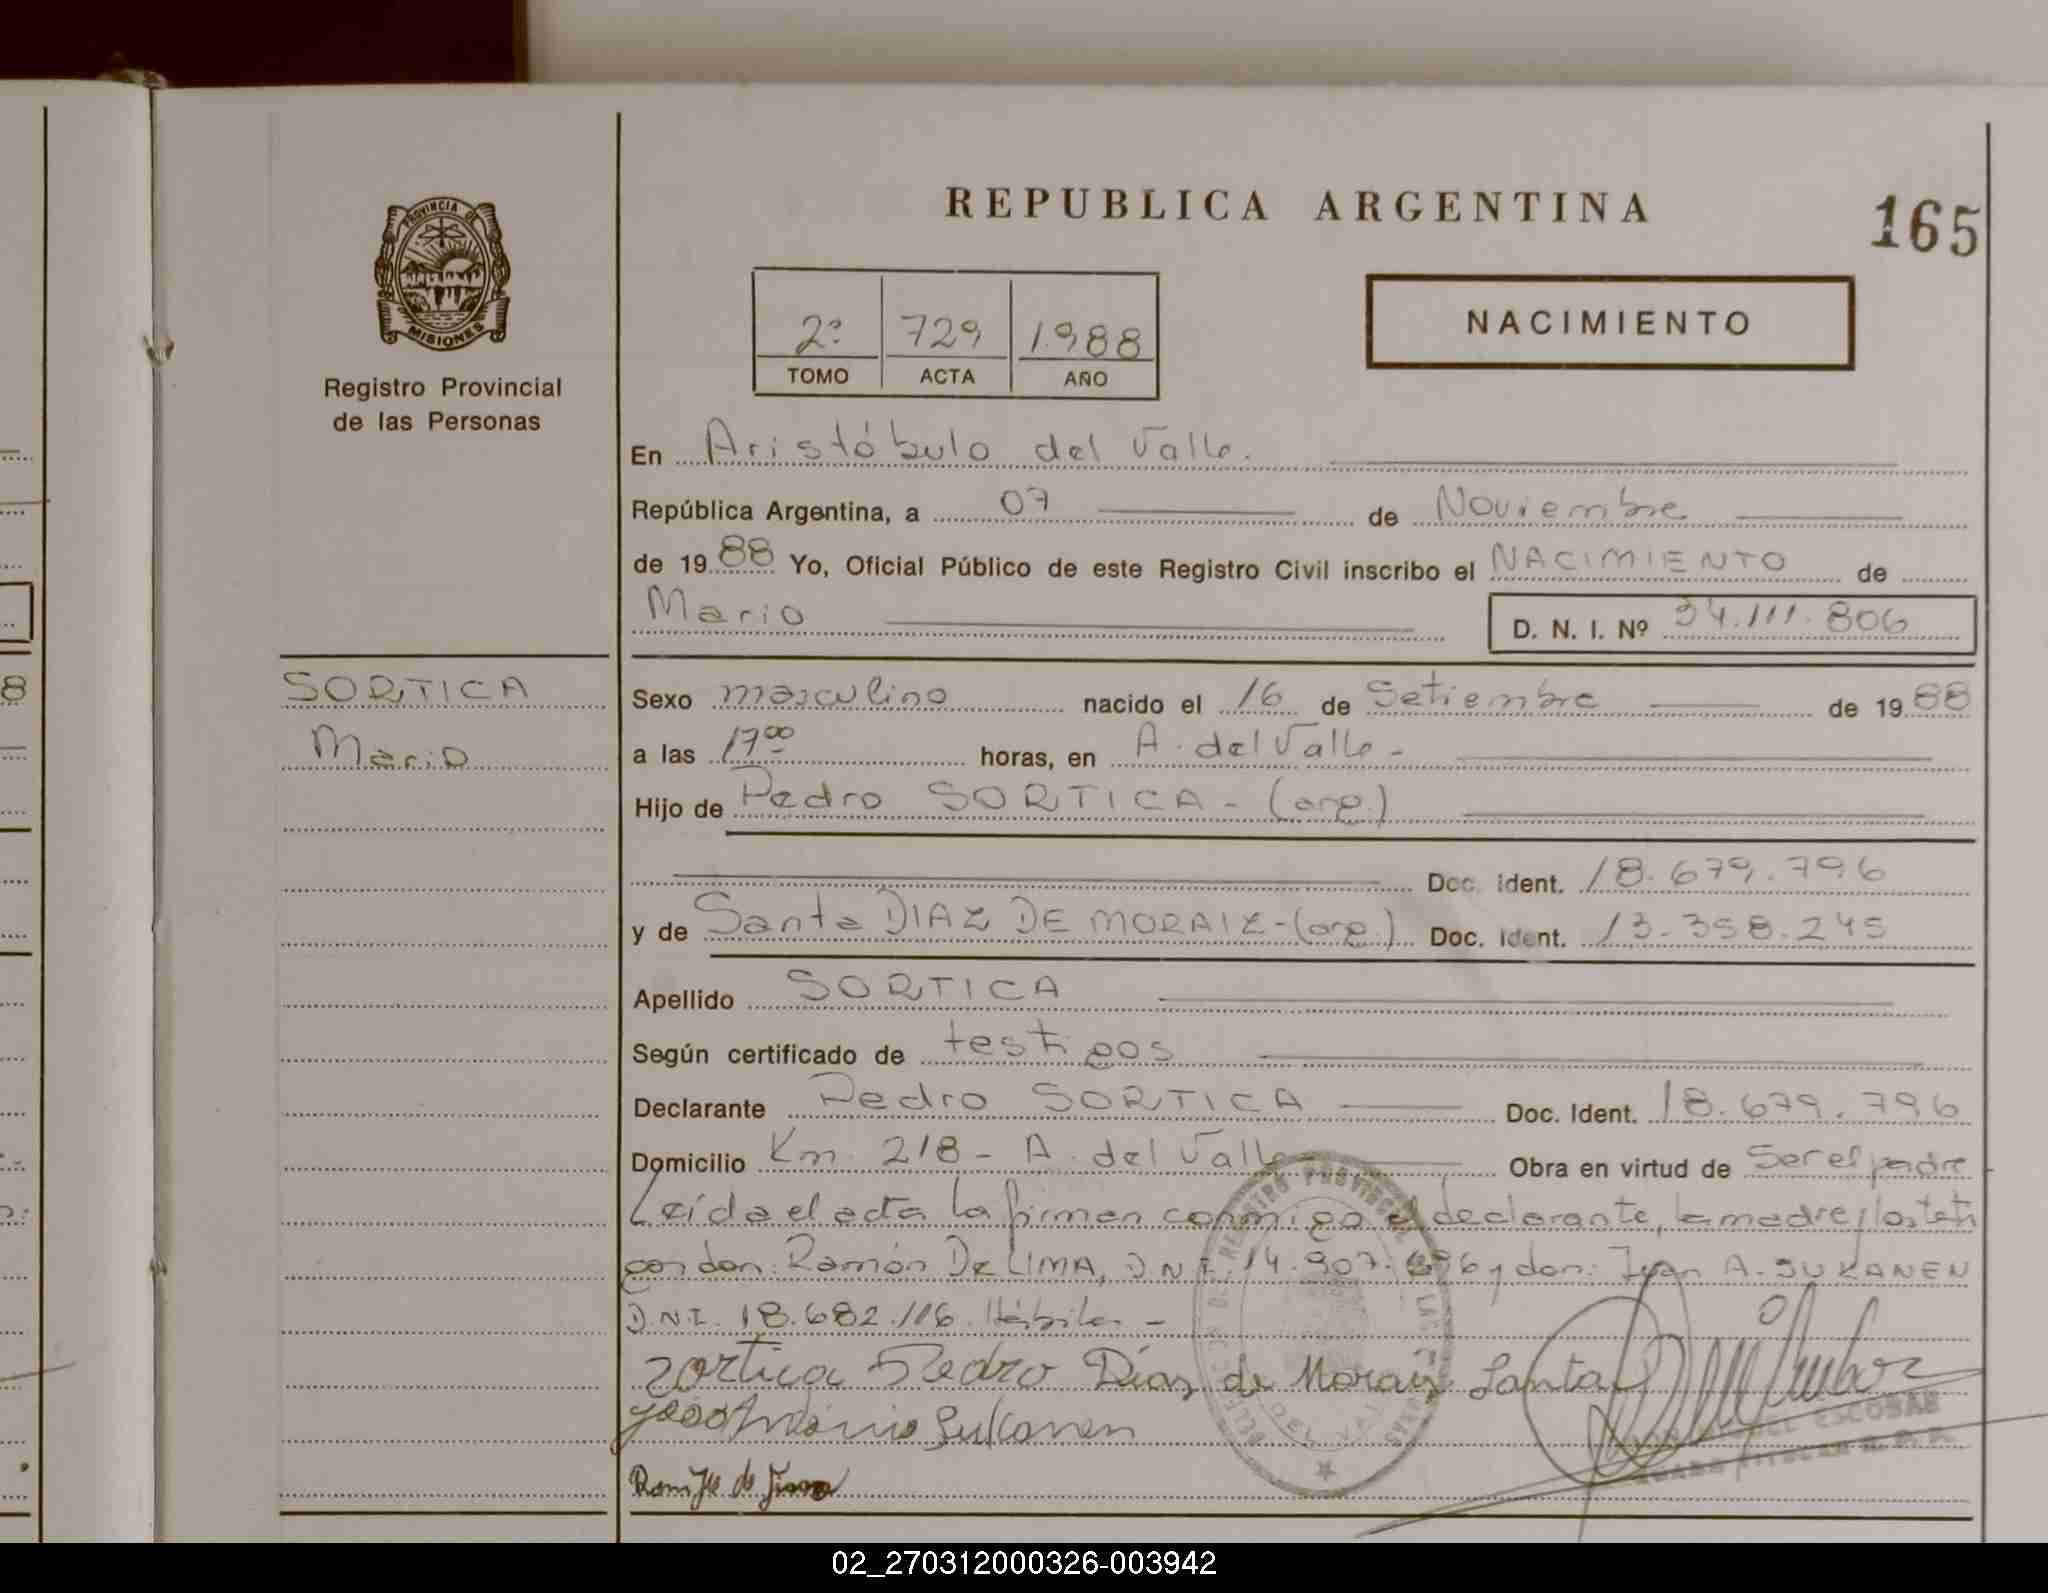 REPUBLICA ARGENTINA
165
PROVINCIA DE
MISIONES
Registro Provincial
de las Personas
2º 729 1.988
TOMO ACTA AÑO
NACIMIENTO
En Aristóbulo del Valle.
República Argentina, a 07 de Noviembre
de 1988 Yo, Oficial Público de este Registro Civil inscribo el NACIMIENTO de
Mario
D. N. I. Nº 34.111.806
8
SORTICA
Mario
Sexo masculino nacido el 16 de Setiembre de 1988
a las 17⁰⁰ horas, en A. del Valle-
Hijo de Pedro SORTICA - (arg.)
Doc. Ident. 18.679.796
y de Santa DIAZ DE MORAIZ-(arg.) Doc. Ident. 13.358.245
Apellido SORTICA
Según certificado de testigos
Declarante Pedro SORTICA Doc. Ident. 18.679.796
Domicilio Km. 218 - A. del Valle Obra en virtud de Ser el padre
Leída el acta la firman conmigo el declarante, la madre y los testi
gos don: Ramón De LIMA, D.N.I. 14.907. y don: Juan A. SUKANEN
D.N.I. 18.682.116. Hábiles -
zortica Pedro Díaz de Moraiz Santa
Antonio Sukanen
de
ESCOBAR
02_270312000326-003942